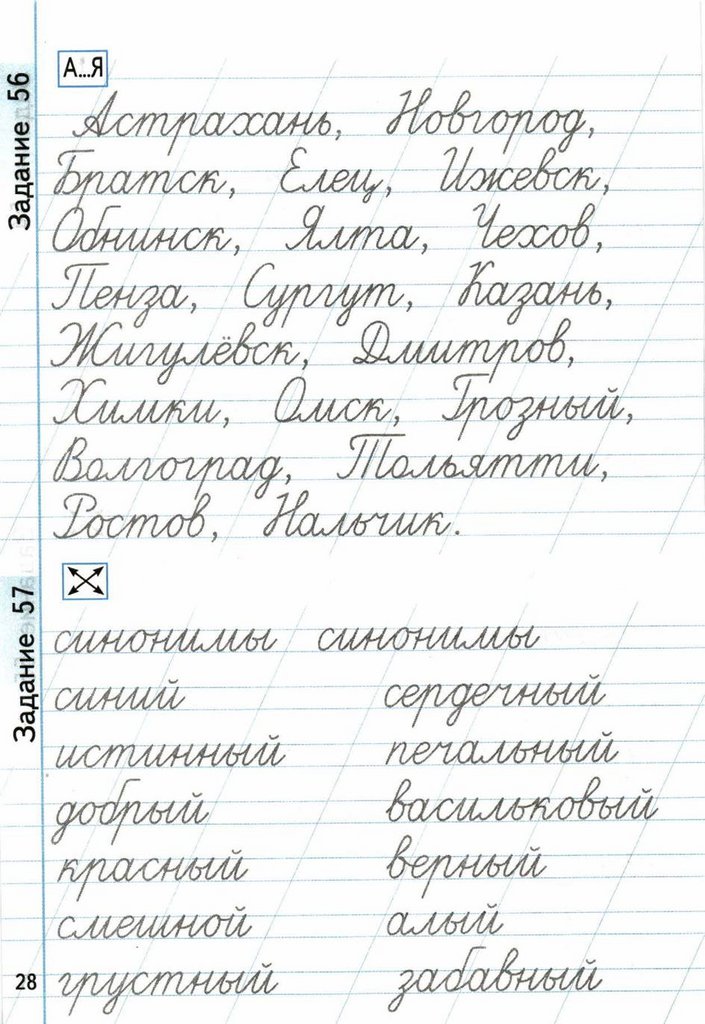 Задание 56
А...Я
Астрахань, Новгород,
Братск, Елец, Ижевск,
Обнинск, Ялта, Чехов,
Пенза, Сургут, Казань,
Жигулёвск, Дмитров,
Химки, Омск, Грозный,
Волгоград, Тольятти,
Ростов, Нальчик.
Задание 57
синонимы синонимы
синий сердечный
истинный печальный
добрый васильковый
красный верный
смешной алый
грустный забавный
28